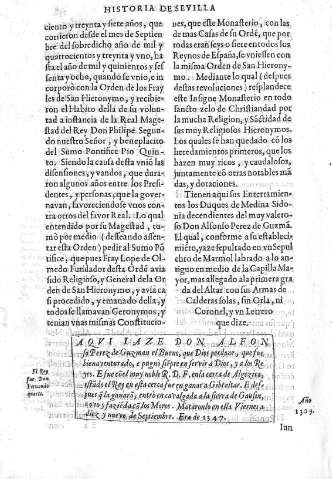 HISTORIA DE SEVILLA
ciento y treynta y siete años, que
corrieron desde el mes de Septiem
bre del sobredicho año de mil y
quatrocientos y treynta y vno, ha
sta el año de mil y quinientos y sef
senta y ocho, quando se vnio, e in-
corporò con la Orden de los Fray
les de San Hieronymo, y recibie-
ron el Habito della de su volun-
tad a instancia de la Real Mage-
stad del Rey Don Philipe Segun-
do nuestro Señor, y beneplacito
del Sumo Pontifice Pio Quin-
to. Siendo la causa desta vniõ las
disensiones, y vandos, que dura-
ron algunos años entre los Presi-
dentes, y personas, que la gover-
navan, favoreciendose vnos con-
tra otros del favor Real. Lo qual
entendido por su Magestad, to-
mò por medio (desseando assen-
tar esta Orden) pedir al Sumo Põ
tifice; que pues Fray Lope de Ol-
medo Fundador desta Ordé avia
sido Religioso, y General de la Or
den de San Hieronymo, y avia ca
si procedido, y emanado della, y
todos se llamavan Geronymos, y
tenian vnas mismas Constitucio-
nes, que este Monasterio, con las
de mas Casas de su Ordé, que por
todas eran seys o siete en todos los
Reynos de España, se vniessen con
la misma Orden de San Hierony-
mo. Mediante lo qual (despues
destas revoluciones) resplandece
este Insigne Monasterio en todo
sancto zelo de Christiandad por
la mucha Religion, y Sáctidad de
sus muy Religiosos Hieronymos.
Los quales se han quedado cõ los
heredamientos primeros, que los
hazen muy ricos, y caudalosos,
juntamente cõ otras notables má
das, y dotaciones.
Tienen aqui sus Enterramien
tos los Duques de Medina Sido-
nia decendientes del muy valero-
so Don Alfonso Perez de Guzmã.
El qual, conforme a su establesci-
miéto, yaze sepultado en vn Sepul
chro de Marmol labrado a lo an-
tiguo en medio de la Capilla Ma-
yor, mas allegado a la primera gra
da del Altar con sus Armas de
Calderas solas, sin Orla, ni
Coronel, y vn Letrero
que dize.
AQVI IAZE DON ALFON
so Perez de Guzman el Bueno, que Dios perdone, que fue
bienaventurado, e pugnò siépre en servir a Dios, y a los Re
yes. E fue cõ el muy noble R. D. F. en la cerca de Algezira,
estãdo el Rey en esta cerca fue en ganar a Gibraltar. E des-
pues q̃ la ganarõ, entrò en cavalgada a la sierra de Gausin,
ovo y fazieda cõ los Moros. Mataronlo en ella Viernes a
diez y nueve de Septiembre. Era de 1347.
El Rey
fue Don
Fernando
quarto.
Año
1309.
Iun